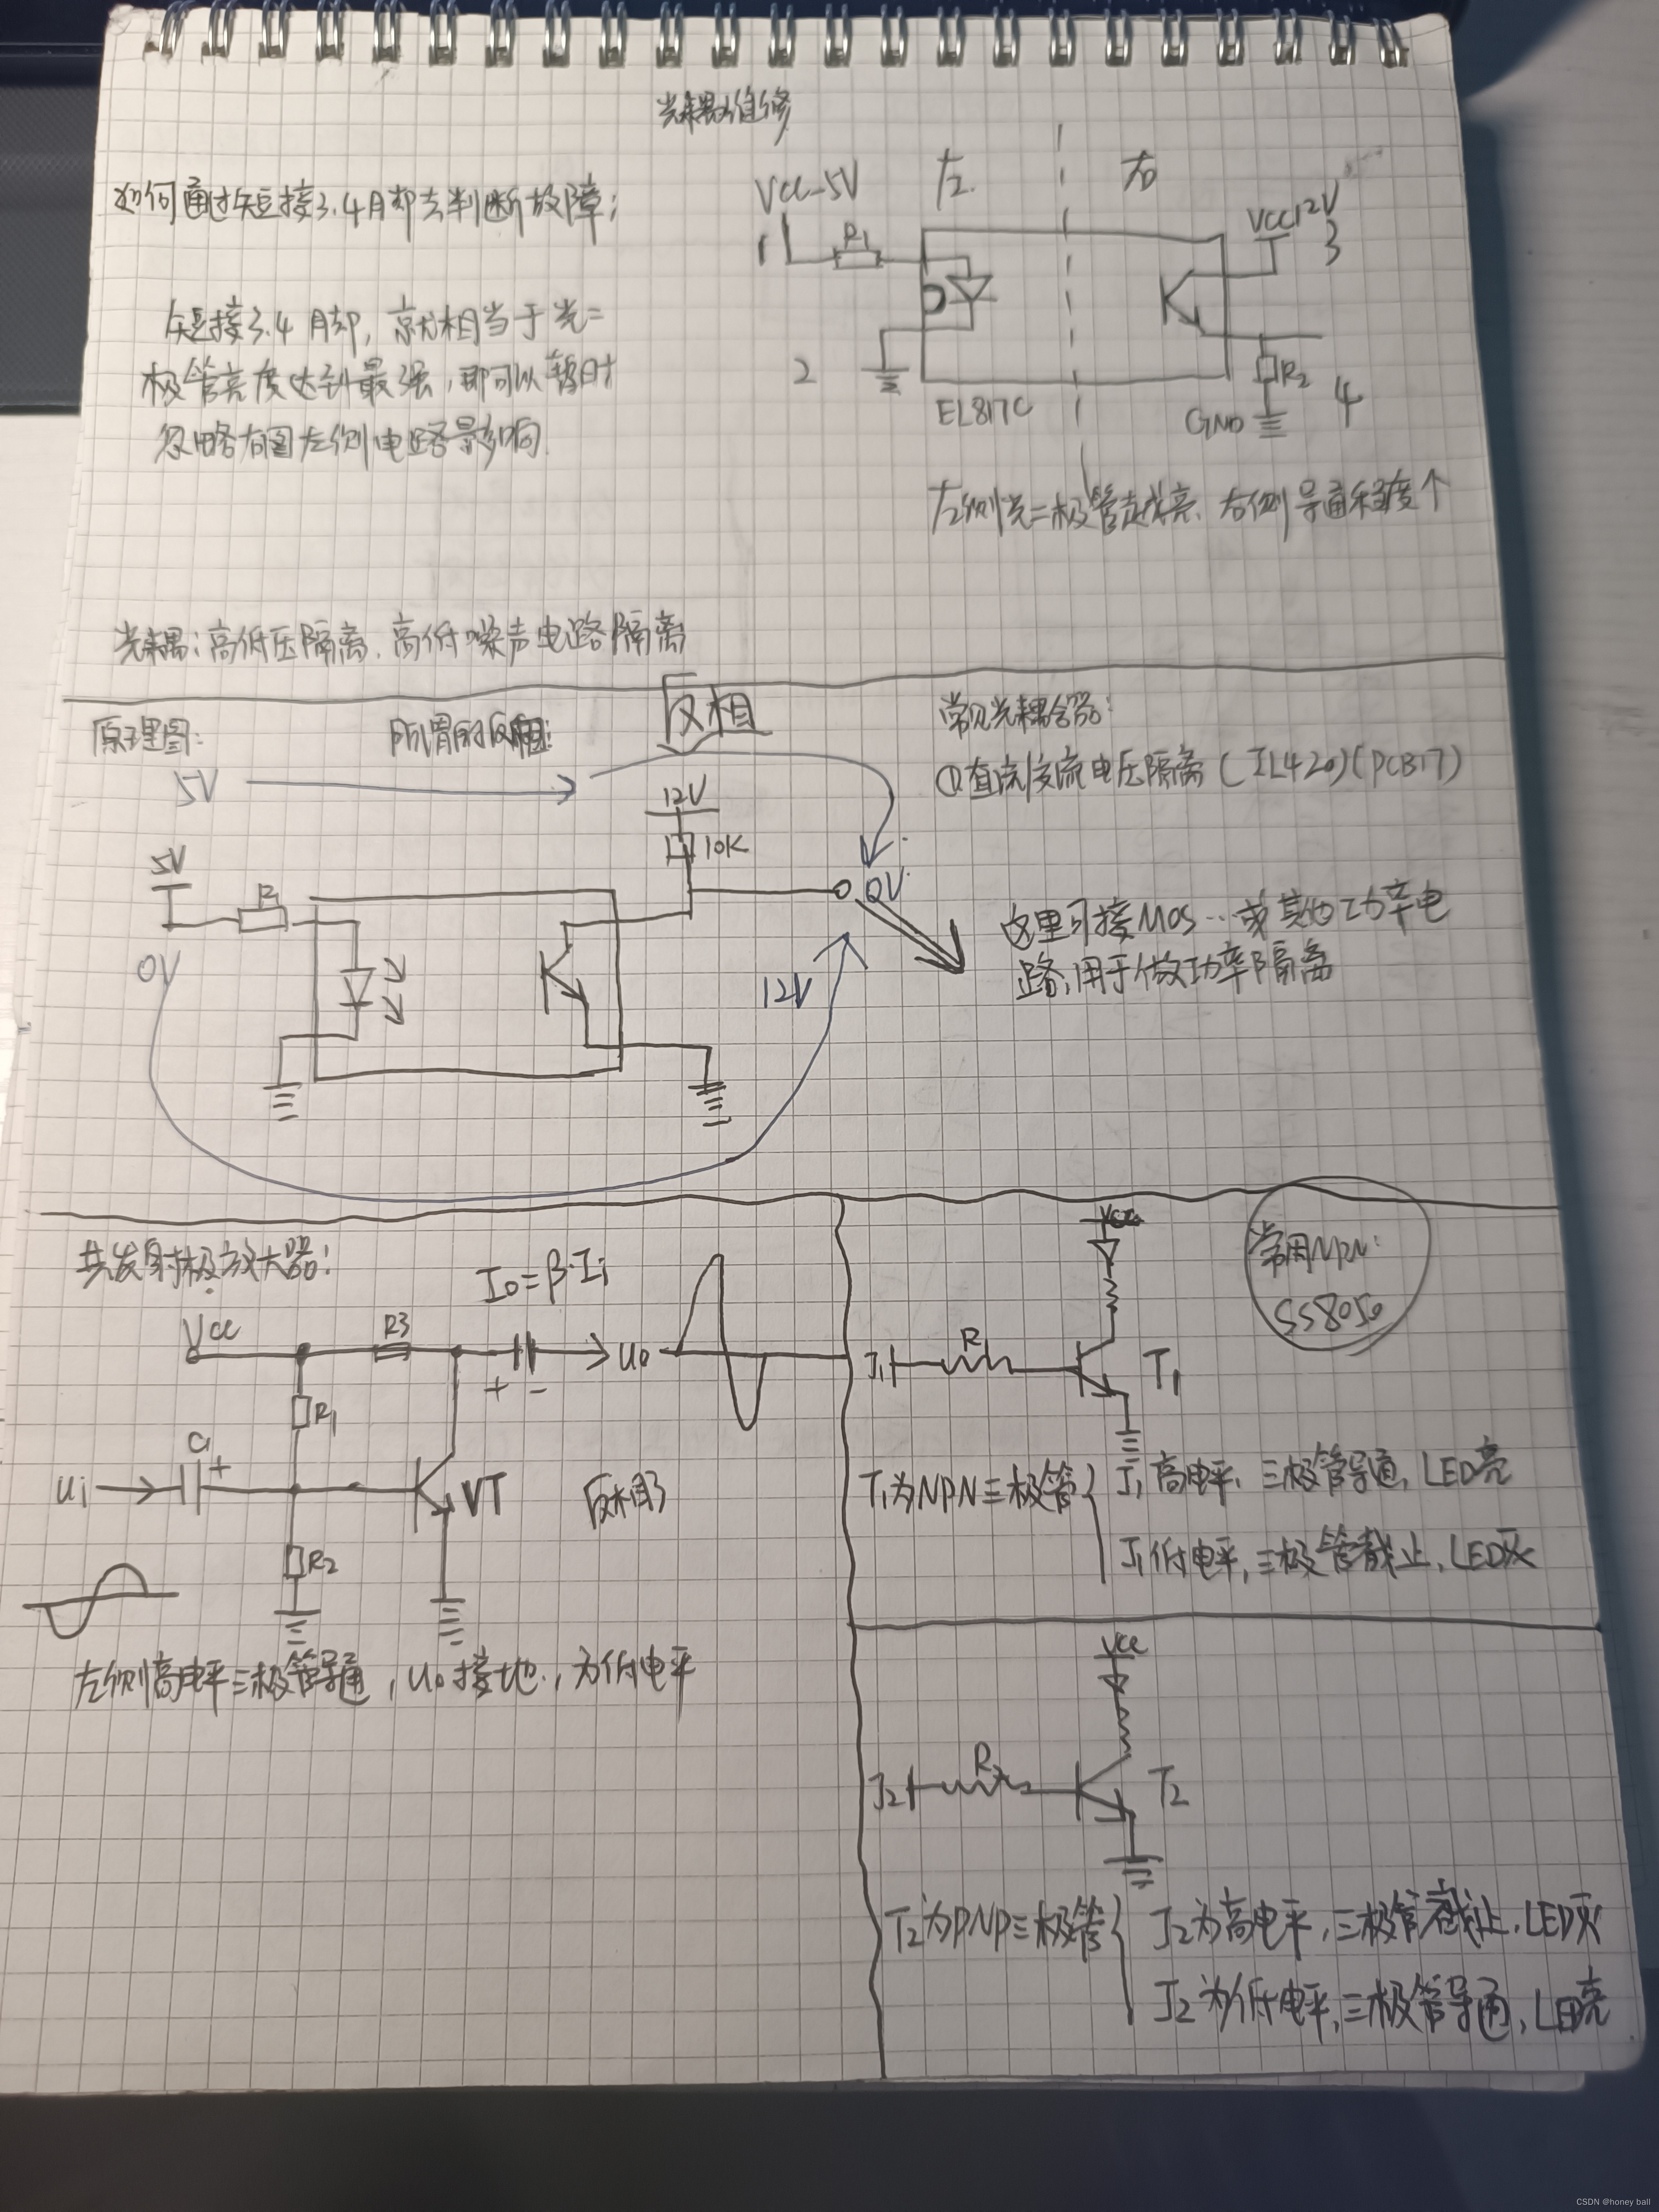 光耦维修
如何通过短接3.4脚去判断故障;
短接3.4脚,就相当于光二
极管亮度达到最强,即可以暂时
忽略右图左侧电路影响.
VCC-5V
左
右
1
R1
VCC12V
3
2
EL817C
R2
GND
4
左侧光二极管越亮、右侧导通程度个
光耦:高低压隔离.高低噪声电路隔离
原理图:
所谓的反相:
反相
5V
12V
10K
5V
R
0V
0V
12V
常见光耦合器:
①直流/交流电压隔离(IL420)(PC817)
这里可接MOS…或其他功率电
路,用于做功率隔离
共发射极放大器:
Io=β·Ii
Vcc
R3
+ -
uo
R1
C1
+
ui
VT
反相了
R2
左侧高电平三极管导通,uo接地.,为低电平
Vcc
J1
R
T1
常用NPN:
SS8050
T1为NPN三极管
J1高电平,三极管导通,LED亮
J1低电平,三极管截止,LED灭
Vcc
J2
R
T2
T2为PNP三极管
J2为高电平,三极管截止.LED灭
J2为低电平,三极管导通,LED亮
CSDN @honey ball